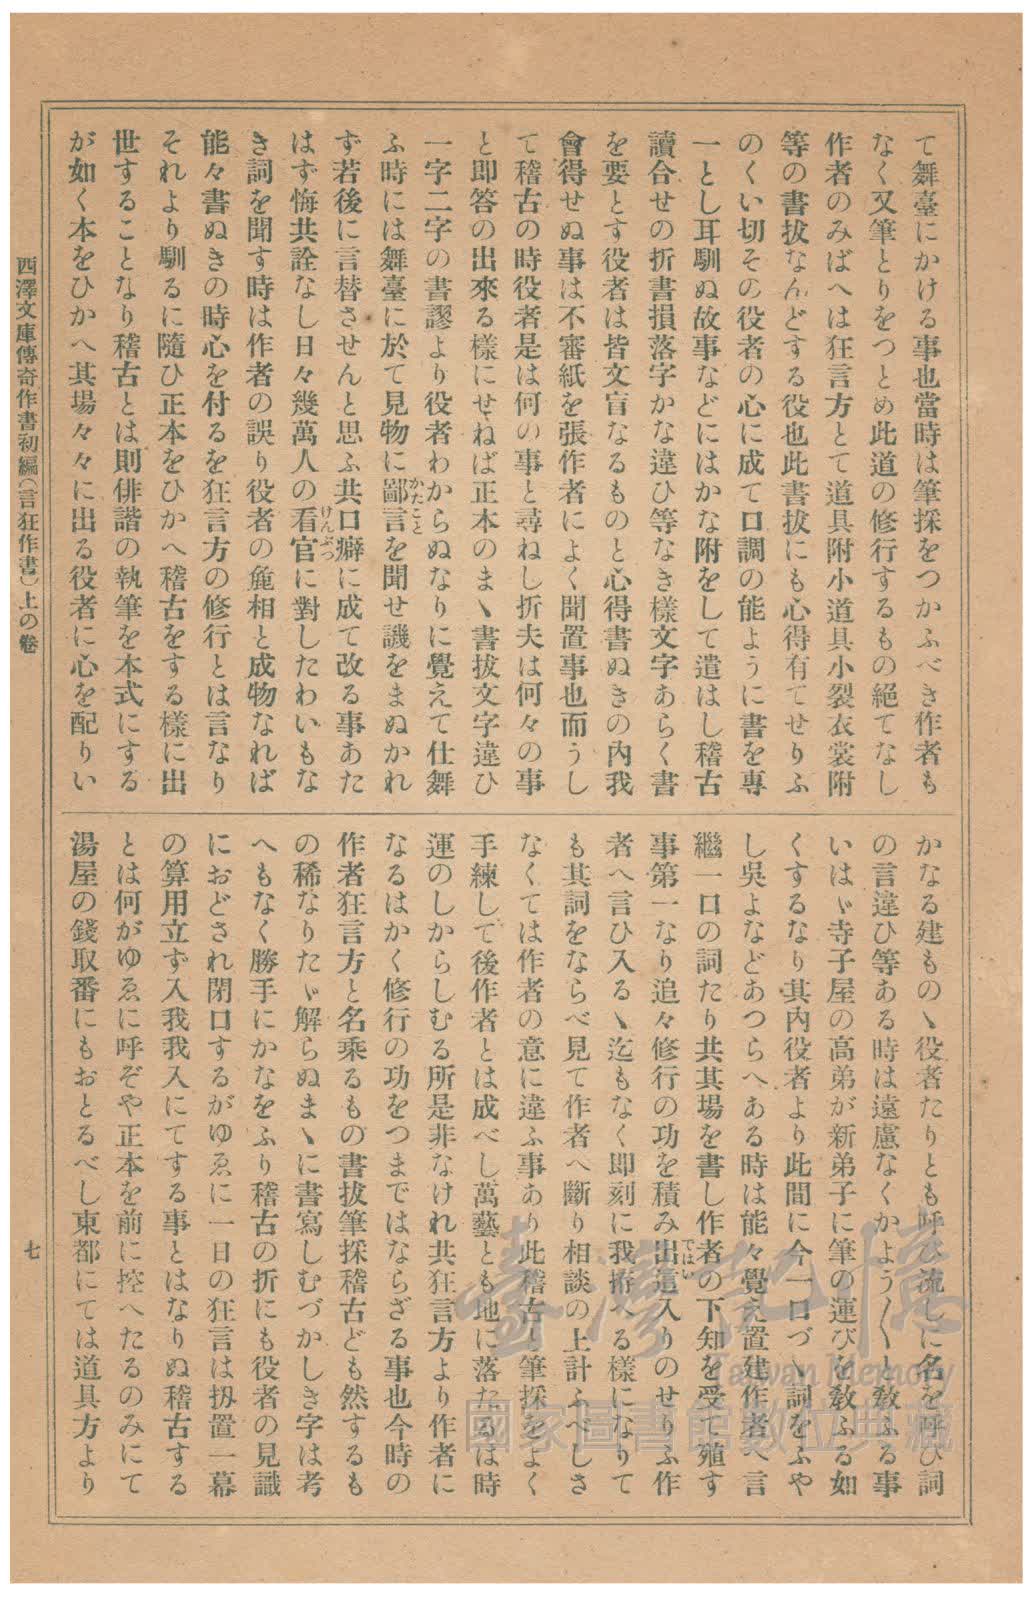 て舞臺にかける事也當時は筆採をつかふべき作者も
なく又筆とりをつとめ此道の修行するもの絕てなし
作者のみばへは狂言方とて道具附小道具小裂衣裳附
等の書拔なんどする役也此書拔にも心得有てせりふ
のくい切その役者の心に成て口調の能ように書を專
一とし耳馴ぬ故事などにはかな附をして遣はし稽古
讀合せの折書損落字かな違ひ等なき樣文字あらく書
を要とす役者は皆文盲なるものと心得書ぬきの內我
會得せぬ事は不審紙を張作者によく聞置事也而うし
て稽古の時役者是は何の事と尋ねし折夫は何々の事
と卽答の出來る樣にせねば正本のまヽ書拔文字違ひ
一字二字の書謬より役者わからぬなりに覺えて仕舞
ふ時には舞臺に於て見物に鄙言を聞せ譏をまぬかれ
かたこと
ず若後に言替させんと思ふ共口癖に成て改る事あた
はず悔共詮なし日々幾萬人の看官に對したわいもな
けんぶつ
き詞を聞す時は作者の誤り役者の麁相と成物なれば
能々書ぬきの時心を付るを狂言方の修行とは言なり
それより馴るに隨ひ正本をひかへ稽古をする樣に出
世することなり稽古とは則俳諧の執筆を本式にする
が如く本をひかへ其場々々に出る役者に心を配りい
かなる建ものヽ役者たりとも呼び流しに名を呼び詞
の言違ひ等ある時は遠慮なくかよう〱と敎ふる事
いはヾ寺子屋の高弟が新弟子に筆の運びを敎ふる如
くするなり其內役者より此間に今一口づヽ詞をふや
し吳よなどあつらへある時は能々覺え置建作者へ言
繼一口の詞たり共其場を書し作者の下知を受て殖す
事第一なり追々修行の功を積み出這入りのせりふ作
ではい
者へ言ひ入るヽ迄もなく卽刻に我拵へる樣になりて
も其詞をならべ見て作者へ斷り相談の上計ふべしさ
なくては作者の意に違ふ事あり此稽古と筆採をよく
手練して後作者とは成べし萬藝とも地に落たるは時
運のしからしむる所是非なけれ共狂言方より作者に
なるはかく修行の功をつまではならざる事也今時の
作者狂言方と名乘るもの書拔筆採稽古ども然するも
の稀なりたヾ解らぬまヽに書寫しむづかしき字は考
へもなく勝手にかなをふり稽古の折にも役者の見識
におどされ閉口するがゆゑに一日の狂言は扨置一幕
の算用立ず入我我入にてする事とはなりぬ稽古する
とは何がゆゑに呼ぞや正本を前に控へたるのみにて
湯屋の錢取番にもおとるべし東都にては道具方より
西澤文庫傳奇作書初編(言狂作書)上の卷
七
臺灣記憶
Taiwan Memory
國家圖書館數位典藏